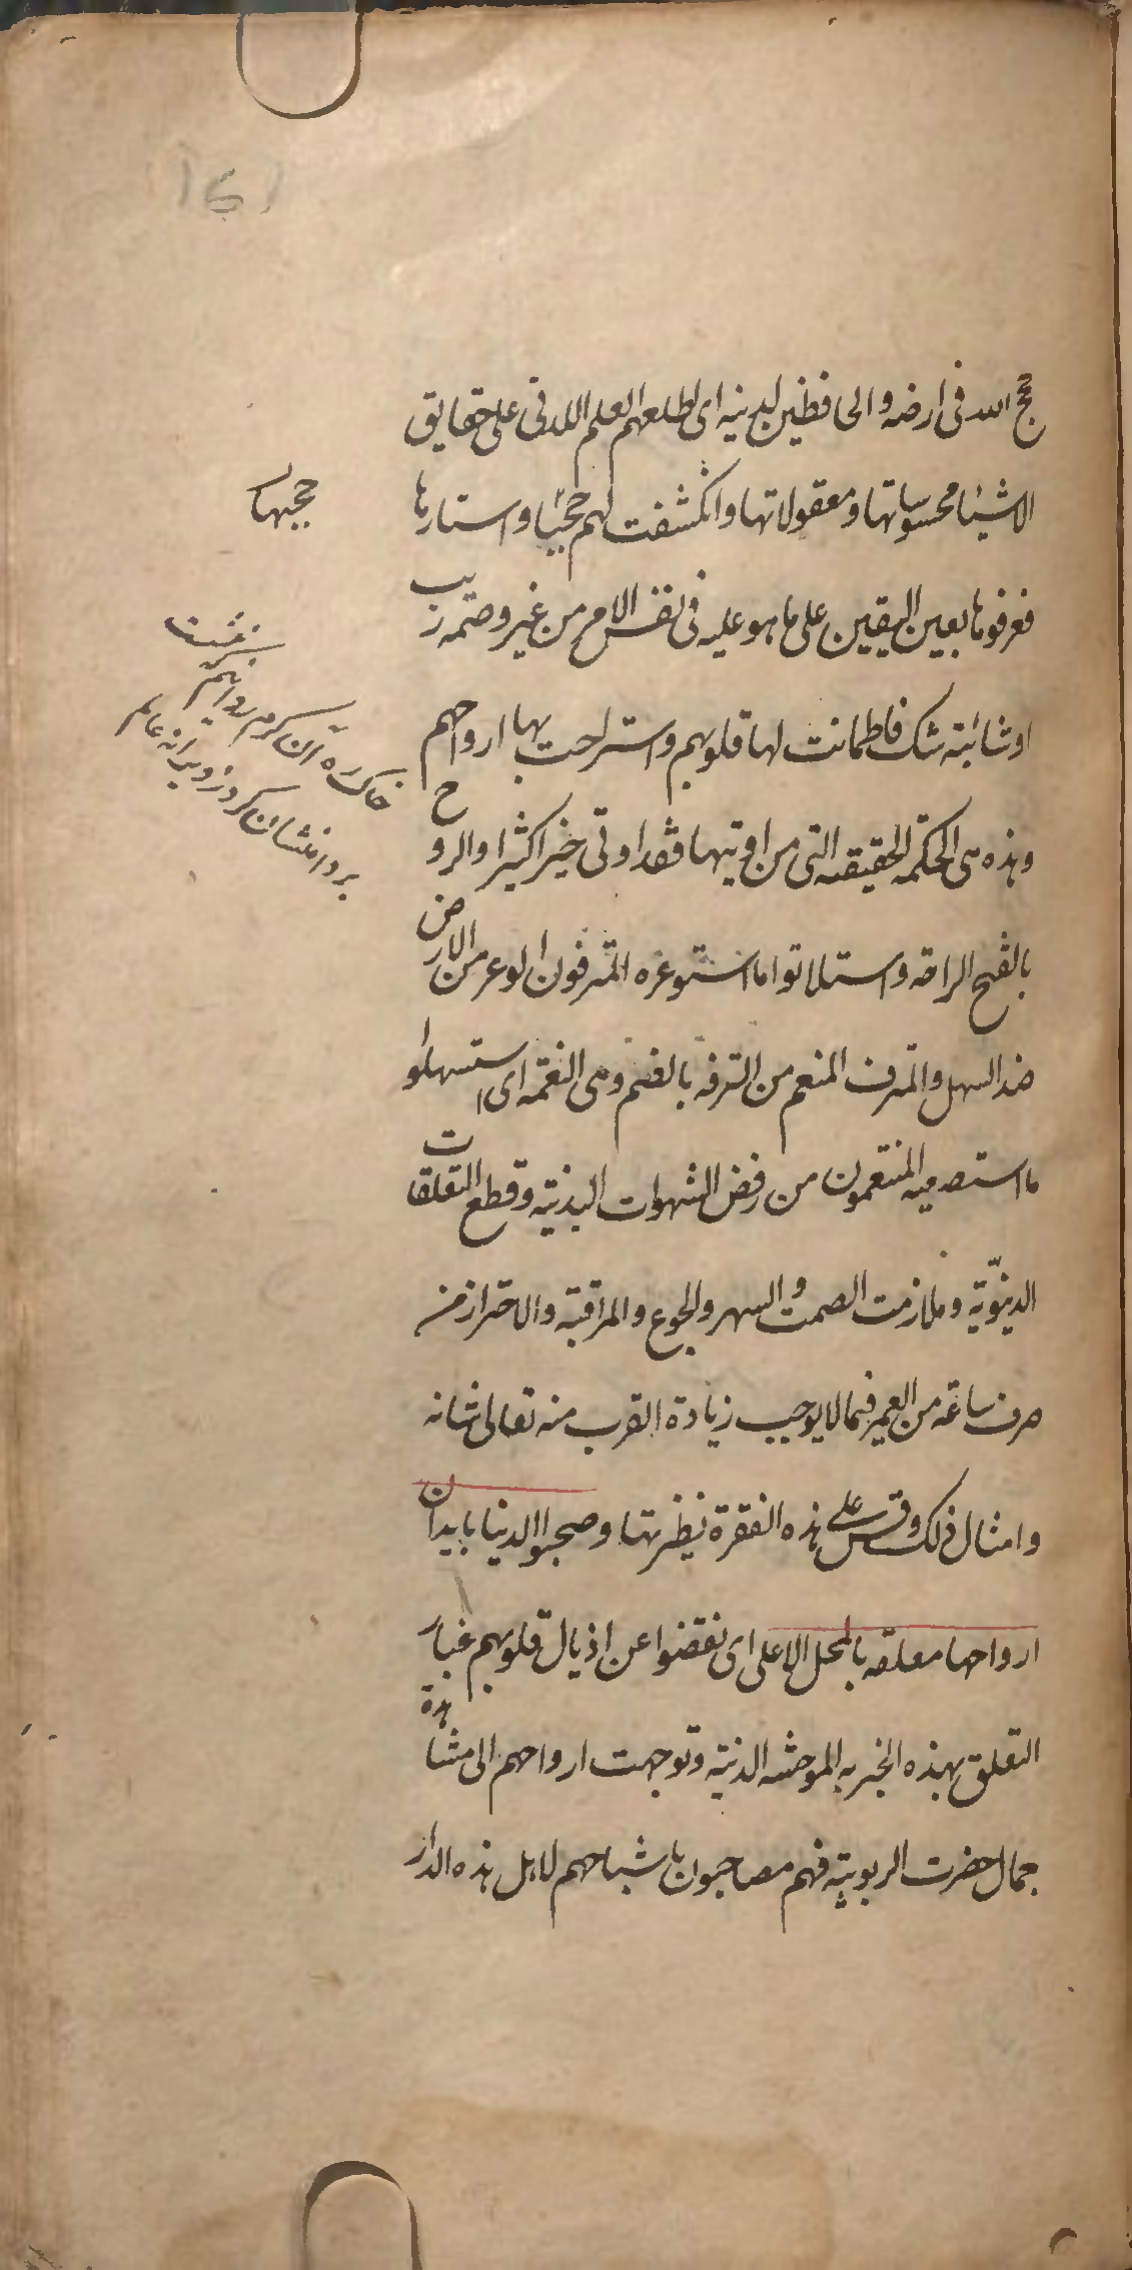 حجج الله فی ارضه و الحافظین لدینه ای لطلعهم العلم اللدنی علی حقایق
الاشیاء محسوساتها و معقولاتها و انکشفت لهم حجبها و استارها
فعرفوها بعین الیقین علی ما هو علیه فی نفس الامر من غیر وصمه ریب
او شائبة شک فاطمانت لها قلوبهم و استراحت بها ارواحهم
و هذه هی الحکمة الحقیقیه التی من اوتیها فقد اوتی خیرا کثیرا و الروح
بالفتح الراحه و استلانوا ما استوعره المترفون الوعر من الارض
ضد السهل و المترف المنعم من الترفه بالضم و هی النعمه ای استسهلوا
ما استصعبه المنتعمون من رفض الشهوات البدنیة و قطع التعلقات
الدنیویّة و ملازمت الصمت و السهر و الجوع و المراقبة و الاحتراز من
صرف ساعة من العمر فیما لا یوجب زیادة القرب منه تعالی شانه
و امثال ذلک و قس علی هذه الفقرة نظیرتها و صحبوا الدنیا بابدان
ارواحها معلقه بالمحل الاعلی ای نفضوا عن اذیال قلوبهم غبار
التعلق بهذه الخربه الموحشه الدنیة و توجهت ارواحهم الی مشاهدة
جمال حضرت الربوبیة فهم مصاحبون باشباحهم لاهل هذه الدار
حجبها
خاک ره آن کرم روانیم
بر دامنشان کرد ز ویرانه عالم